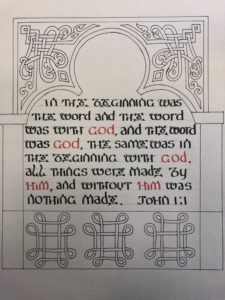 in the beginning was
the word and the word
was with God, and the word
was God. the same was in
the beginning with God.
all things were made by
Him, and without Him was
nothing made. John 1:1